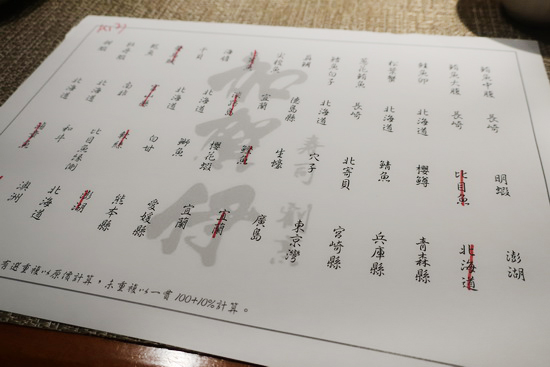 鮪魚中腹
鮪魚大腹
鮭魚卵
松葉蟹
葱花鮪魚
鱈魚白子
海膽
干貝
長崎
長崎
北海道
北海道
長崎
北海道
德島縣
宜蘭
北海道
北海道
高雄
北海道
北海道
明蝦
比目魚
櫻鱒
鯖魚
北寄貝
穴子
生蠔
櫻花蝦
鰤魚
白甘
比目魚緣側
和牛
澎湖
北海道
青森縣
兵庫縣
宮崎縣
東京灣
廣島
宜蘭
宜蘭
愛媛縣
熊本縣
澎湖
北海道
澳洲
壽司割烹
有選重複以原價計算，未重複以一貫100+10%計算。